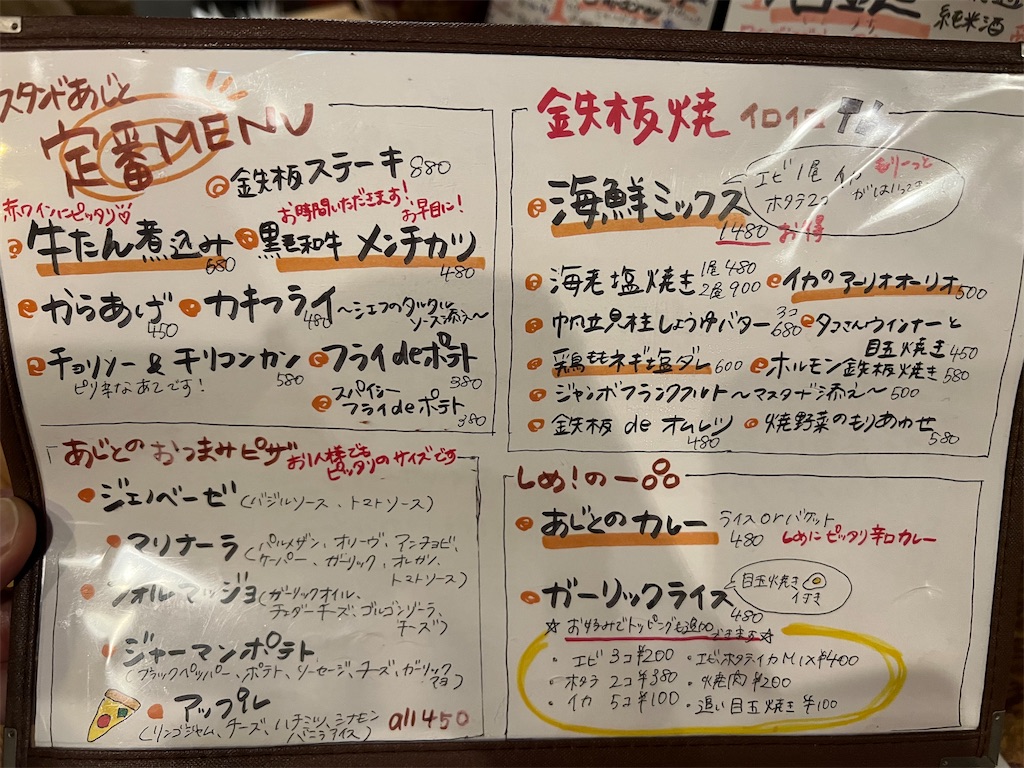 純米酒
スタンドあじと
定番MENU
鉄板ステーキ 880
赤ワインにピッタリ♡
お時間いただきます！
お早目に！
牛たん煮込み 680
黒毛和牛 メンチカツ 480
からあげ 450
カキフライ 480 〜シェフのタルタルソース添え〜
チョリソー & チリコンカン 580
ピリ辛なあてです！
フライdeポテト 380
スパイシー
フライdeポテト 380
あじとのおつまみピザ お1人様でも
ピッタリのサイズです
ジェノベーゼ (バジルソース、トマトソース)
マリナーラ (パルメザン、オリーヴ、アンチョビ、
ケーパー、ガーリック、オレガノ、
トマトソース)
フォルマッジョ (ガーリックオイル、
チェダーチーズ、ゴルゴンゾーラ、
チーズ)
ジャーマンポテト
(ブラックペッパー、ポテト、ソーセージ、チーズ、ガーリック、
マヨ)
アップル
(リンゴジャム、チーズ、ハチミツ、シナモン
バニラアイス)
all 450
鉄板焼 イロイロ
海鮮ミックス
1480 お得
エビ1尾 イカ
ホタテ2コ
もりーっと
海老塩焼き 1尾 480
2尾 900
イカのアーリオオーリオ 500
帆立貝柱しょうゆバター 3コ 680
タコさんウインナーと
目玉焼き 450
鶏ももネギ塩ダレ 600
ホルモン鉄板焼き 580
ジャンボフランクフルト 〜マスタード添え〜 500
鉄板 de オムレツ 480
焼野菜のもりあわせ 580
しめ！の一品
あじとのカレー ライス or バケット
480 しめにピッタリ辛口カレー
ガーリックライス 480
目玉焼き
☆お好みでトッピングも追加
できます☆
・エビ 3コ ¥200 ・エビホタテイカMIX ¥400
・ホタテ 2コ ¥380 ・焼肉 ¥200
・イカ 5コ ¥100 ・追い目玉焼き ¥100